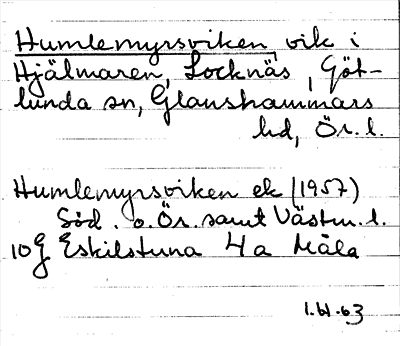 Humlemyrsviken, vik i
Hjälmaren, Locknäs, Göt-
lunda sn, Glanshammars
hd, Ör. l.
Humlemyrsviken ek (1957)
Söd. o. Ör. samt Västm. l.
10 g Eskilstuna 4a Mäla